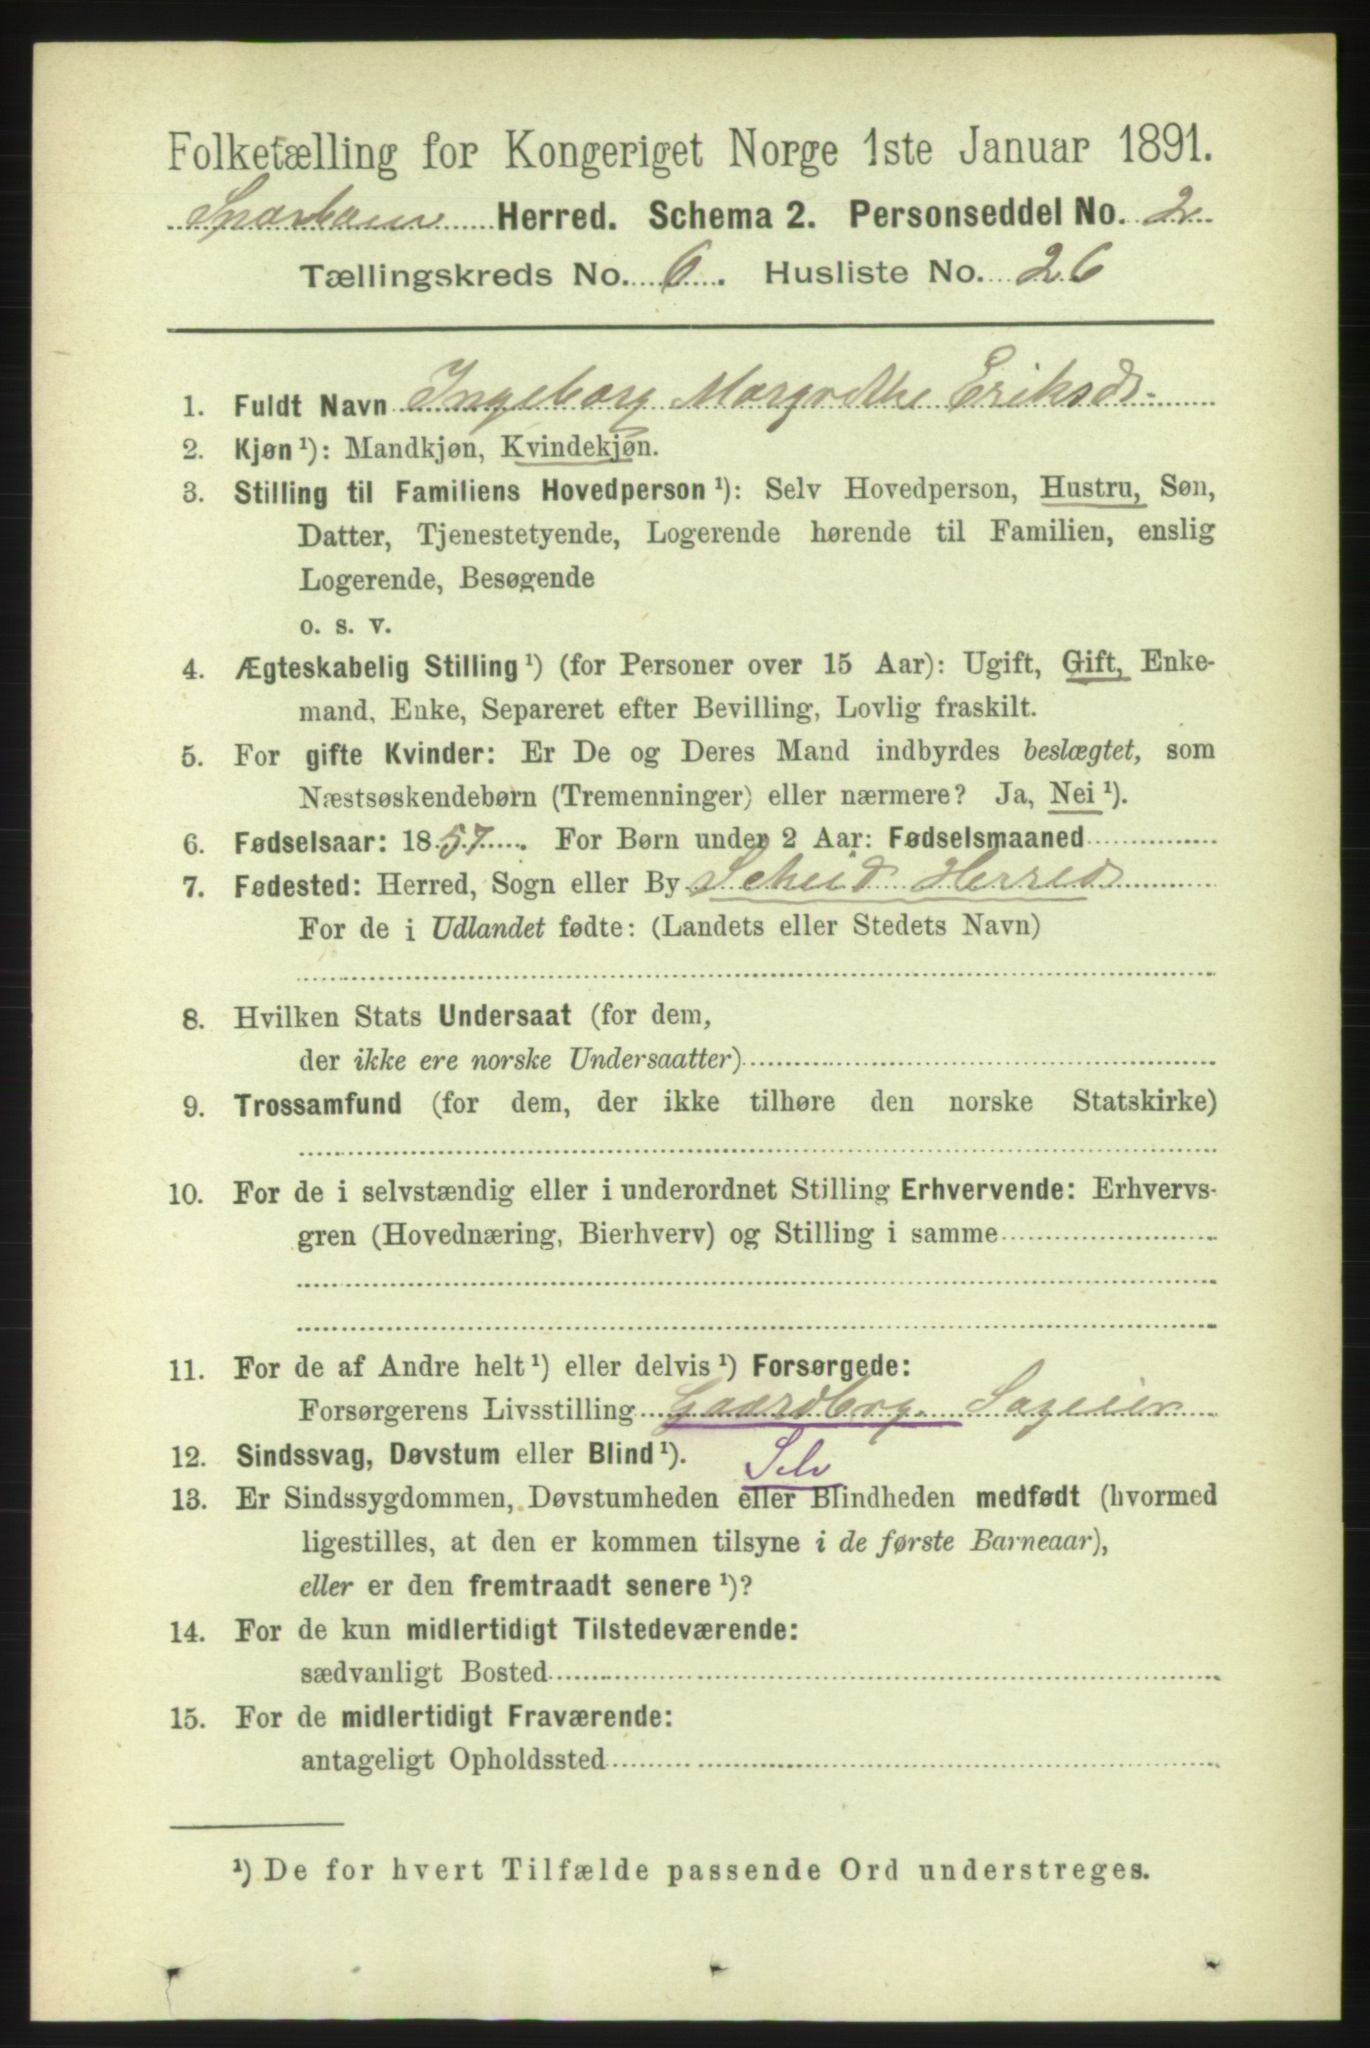 Folketælling for Kongeriget Norge 1ste Januar 1891.
Sparbuen Herred. Schema 2. Personseddel No. 2
Tællingskreds No. 6. Husliste No. 26
1. Fuldt Navn Ingeborg Margrethe Eriksdr.
2. Kjøn¹): Mandkjøn, Kvindekjøn.
3. Stilling til Familiens Hovedperson¹): Selv Hovedperson, Hustru, Søn,
Datter, Tjenestetyende, Logerende hørende til Familien, enslig
Logerende, Besøgende
o. s. v.
4. Ægteskabelig Stilling¹) (for Personer over 15 Aar): Ugift, Gift, Enke-
mand, Enke, Separeret efter Bevilling, Lovlig fraskilt.
5. For gifte Kvinder: Er De og Deres Mand indbyrdes beslægtet, som
Næstsøskendebørn (Tremenninger) eller nærmere? Ja, Nei¹).
6. Fødselsaar: 1857. For Børn under 2 Aar: Fødselsmaaned
7. Fødested: Herred, Sogn eller By Scheid Herred
For de i Udlandet fødte: (Landets eller Stedets Navn)
8. Hvilken Stats Undersaat (for dem,
der ikke ere norske Undersaatter)
9. Trossamfund (for dem, der ikke tilhøre den norske Statskirke)
10. For de i selvstændig eller i underordnet Stilling Erhvervende: Erhvervs-
gren (Hovednæring, Bierhverv) og Stilling i samme
11. For de af Andre helt¹) eller delvis¹) Forsørgede:
Forsørgerens Livsstilling Gaardbrg. Sageier
12. Sindssvag, Døvstum eller Blind¹). Selv
13. Er Sindssygdommen, Døvstumheden eller Blindheden medfødt (hvormed
ligestilles, at den er kommen tilsyne i de første Barneaar),
eller er den fremtraadt senere¹)?
14. For de kun midlertidigt Tilstedeværende:
sædvanligt Bosted
15. For de midlertidigt Fraværende:
antageligt Opholdssted
¹) De for hvert Tilfælde passende Ord understreges.